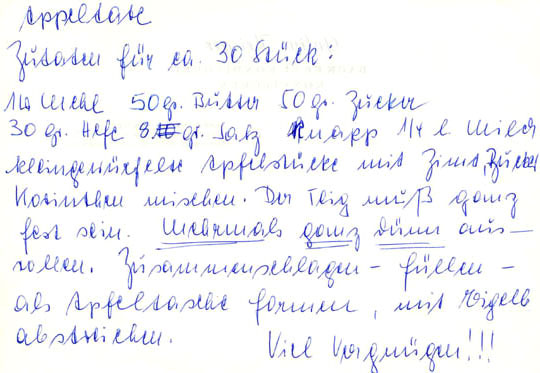 Appeltate
Zutaten für ca. 30 Stück:
1 kg Mehl 50 gr. Butter 50 gr. Zucker
30 gr. Hefe 8 gr. Salz Knapp 1/4 l. Milch
kleingewürfelte Apfelstücke mit Zimt, Zucker
Korinthen mischen. Der Teig muß ganz
fest sein. Mehrmals ganz dünn aus-
rollen. Zusammenschlagen - füllen -
als Apfeltasche formen, mit Eigelb
abstreichen.
Viel Vergnügen!!!